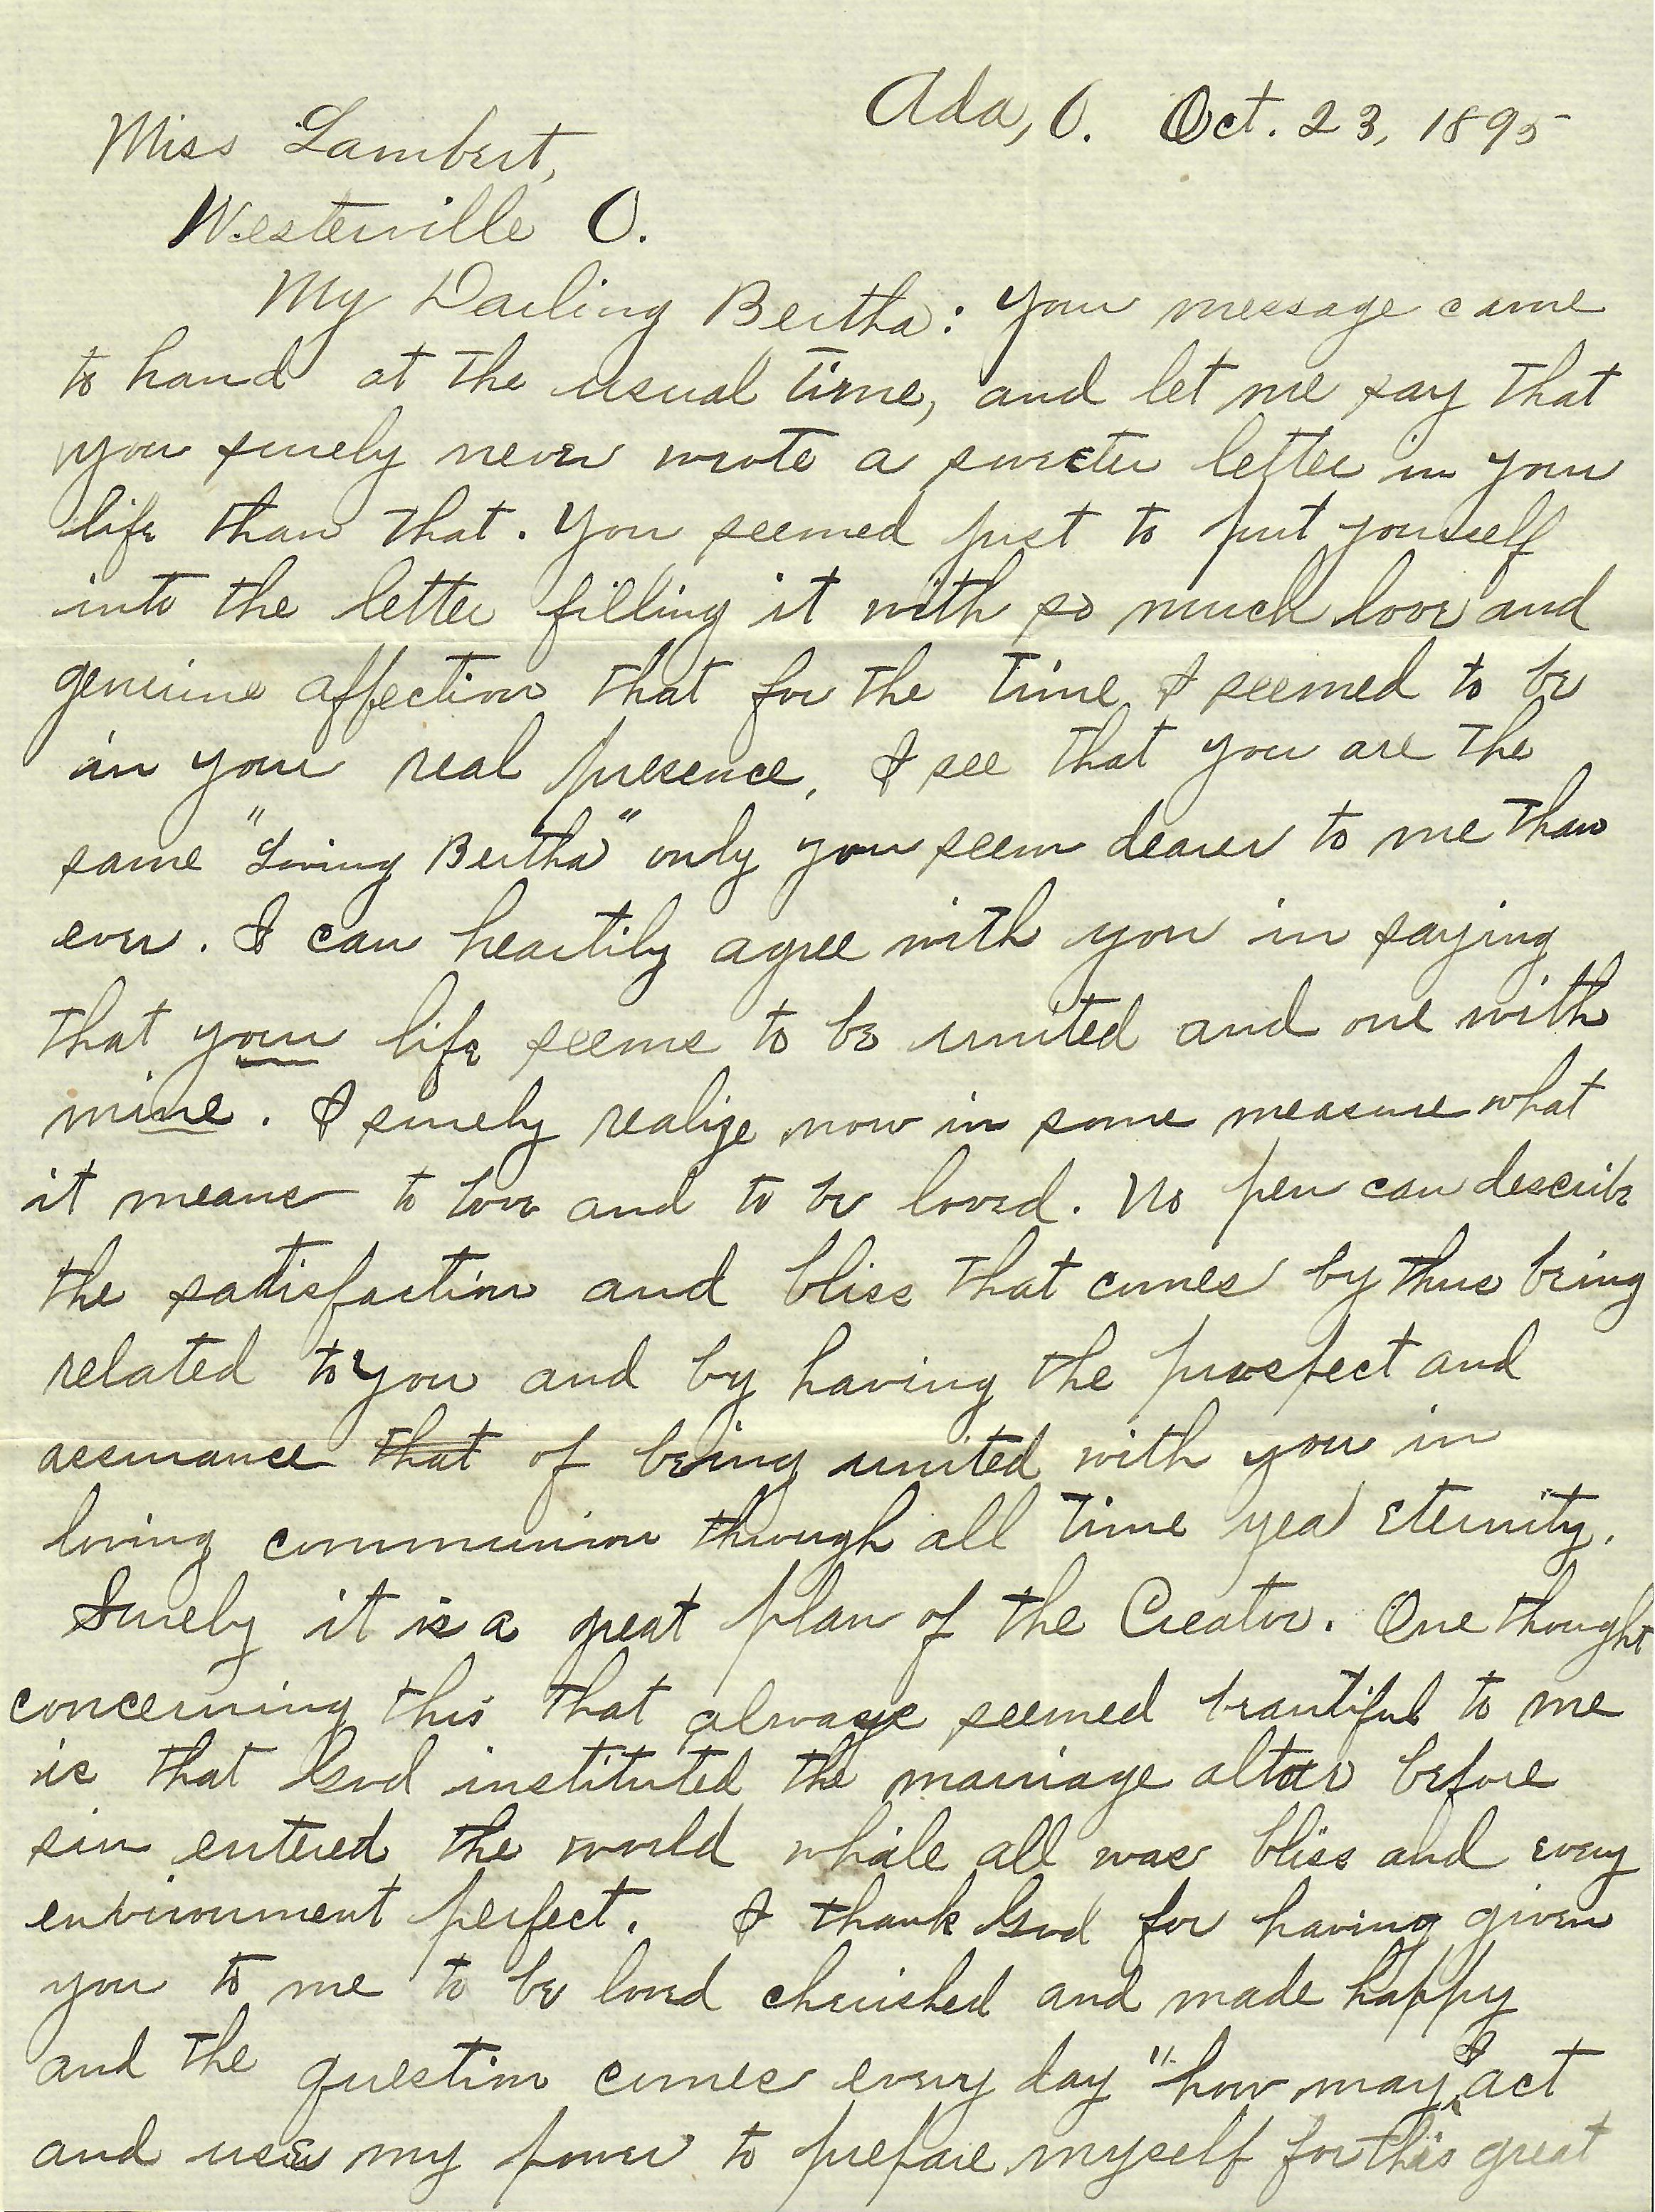 Ada, O. Oct. 23, 1895
Miss Lambert,
Westerville O.
My Darling Bertha: Your message came
to hand at the usual time, and let me say that
you surely never wrote a sweeter letter in your
life than that. You seemed just to put yourself
into the letter filling it with so much love and
genuine affection that for the time I seemed to be
in your real presence. I see that you are the
same "Loving Bertha" only you seem dearer to me than
ever. I can heartily agree with you in saying
that your life seems to be united and one with
mine. I surely realize now in some measure what
it means to love and to be loved. No pen can describe
the satisfaction and bliss that comes by thus being
related to you and by having the prospect and
assurance that of being united with you in
loving communion through all time yea eternity.
Surely it is a great plan of the Creator. One thought
concerning this that always seemed beautiful to me
is that God instituted the marriage altar before
sin entered the world while all was bliss and every
environment perfect. I thank God for having given
you to me to be loved cherished and made happy
and the question comes every day "how may I act
and use my power to prepare myself for this great